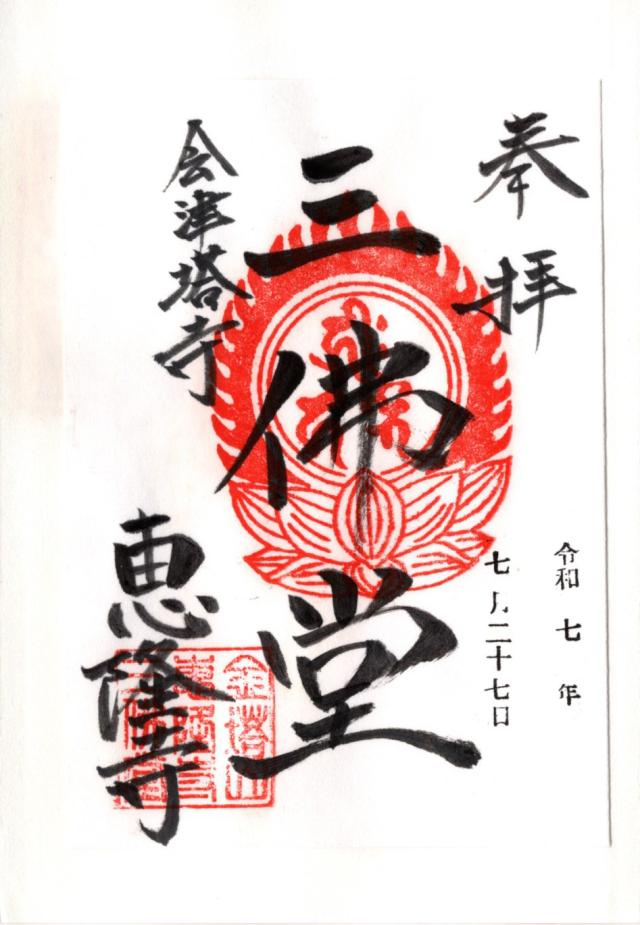 奉拝
令和七年
七月二十七日
三佛堂
会津塔寺
恵隆寺
金塔山